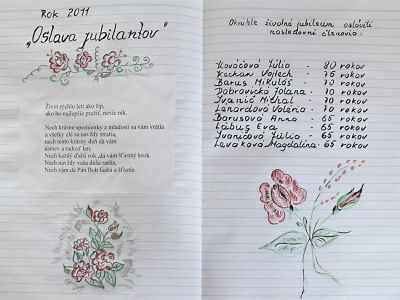 Rok 2011
„Oslava jubilantov"
Život rýchlo letí ako šíp,
ako ho najlepšie prežiť, nevie nik.
Nech krásne spomienky z mladosti sa vám vrátia
a všetky zlé sa navždy stratia,
nech tento krásny deň dá vám
úsmev a radosť len.
Nech každý ďalší rok, dá vám šťastný krok.
Nech navždy vaša duša rastie,
Nech vám dá Pán Boh lásku a šťastie.
Okrúhle životné jubileum oslávili
nasledovní členovia:
Kováčová Júlia - 80 rokov
Kuchan Vojtech - 75 rokov
Barus Mikuláš - 70 rokov
Dobrovická Jolana - 70 rokov
Ivanič Michal - 70 rokov
Lenardová Valéria - 70 rokov
Barusová Anna - 65 rokov
Lábus Eva - 65 rokov
Ivaničová Júlia - 65 rokov
Levaková Magdaléna - 65 rokov